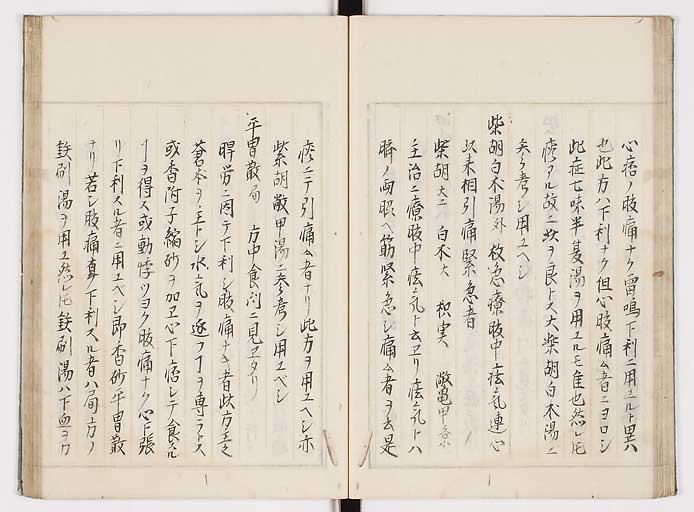 心痞ノ腹痛ナク雷鳴下利ニ用ユルト異ハ
也此方ハ下利ナク但心腹痛ム者ニヨロシ
此症七味半夏湯ヲ用ユルモ佳也然レ𪜈
痞アル故ニ此ヲ良トス大柴胡白朮湯ニ
參考シ用ユヘシ
柴胡白朮湯 外 救急療腹中痃氣連心
以来相引痛緊急者
柴胡 大二 白朮 大 枳実 鱉甲
主治ニ療腹中痃氣ト云ヱリ痃氣トハ
臍ノ両眼ヘ筋緊急シ痛ム者ヲ云是
痞ニテ引痛ム者ナリ此方ヲ用ユヘシ亦
柴胡鱉甲湯ニ參考シ用ユベシ
平胃散 局 方中食門ニ見ヱタリ
脾労ニ因テ下利シ腹痛ナキ者此方主之
蒼朮ヲ主トシ水氣ヲ逐フヿヲ専ラトス
或香附子縮砂ヲ加ヱ心下痞シテ食スル
ヿヲ得ス或動悸ツヨク腹痛ナク心下張
リ下利スル者ニ用ユベシ即香砂平胃散
ナリ若シ腹痛真ノ下利スル者ハ局方ノ
鉄刷湯ヲ用ユ然レ𪜈鉄刷湯ハ下血ヲワ